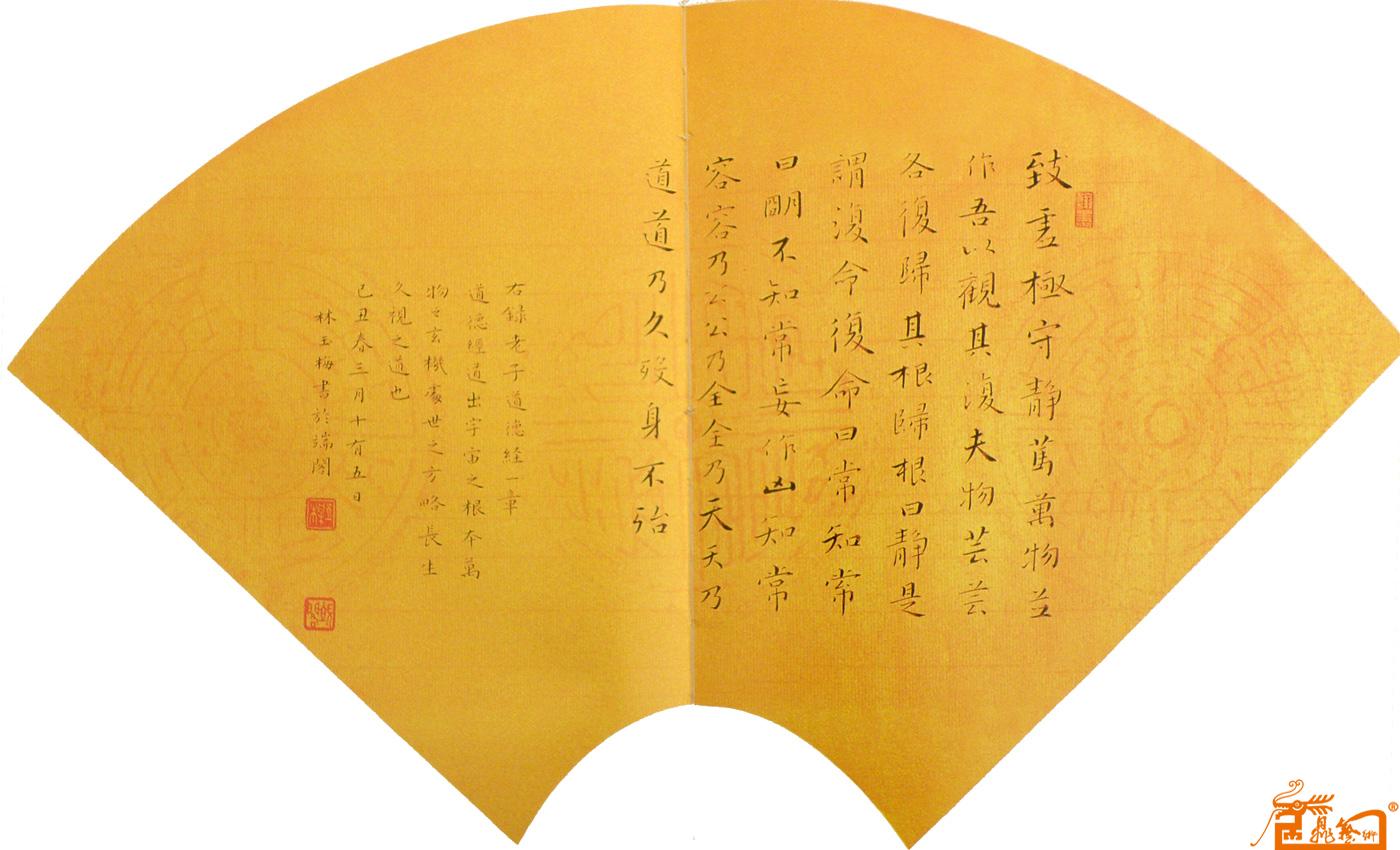 致虚極守静篤萬物並
作吾以觀其復夫物芸芸
各復歸其根歸根曰靜是
謂復命復命曰常知常
曰明不知常妄作凶知常
容容乃公公乃全全乃天天乃
道道乃久歿身不殆
右錄老子道德経一章
道德經道出宇宙之根本萬
物之玄機處世之方略長生
久視之道也
己丑春三月十有五日
林玉梅書於端閣